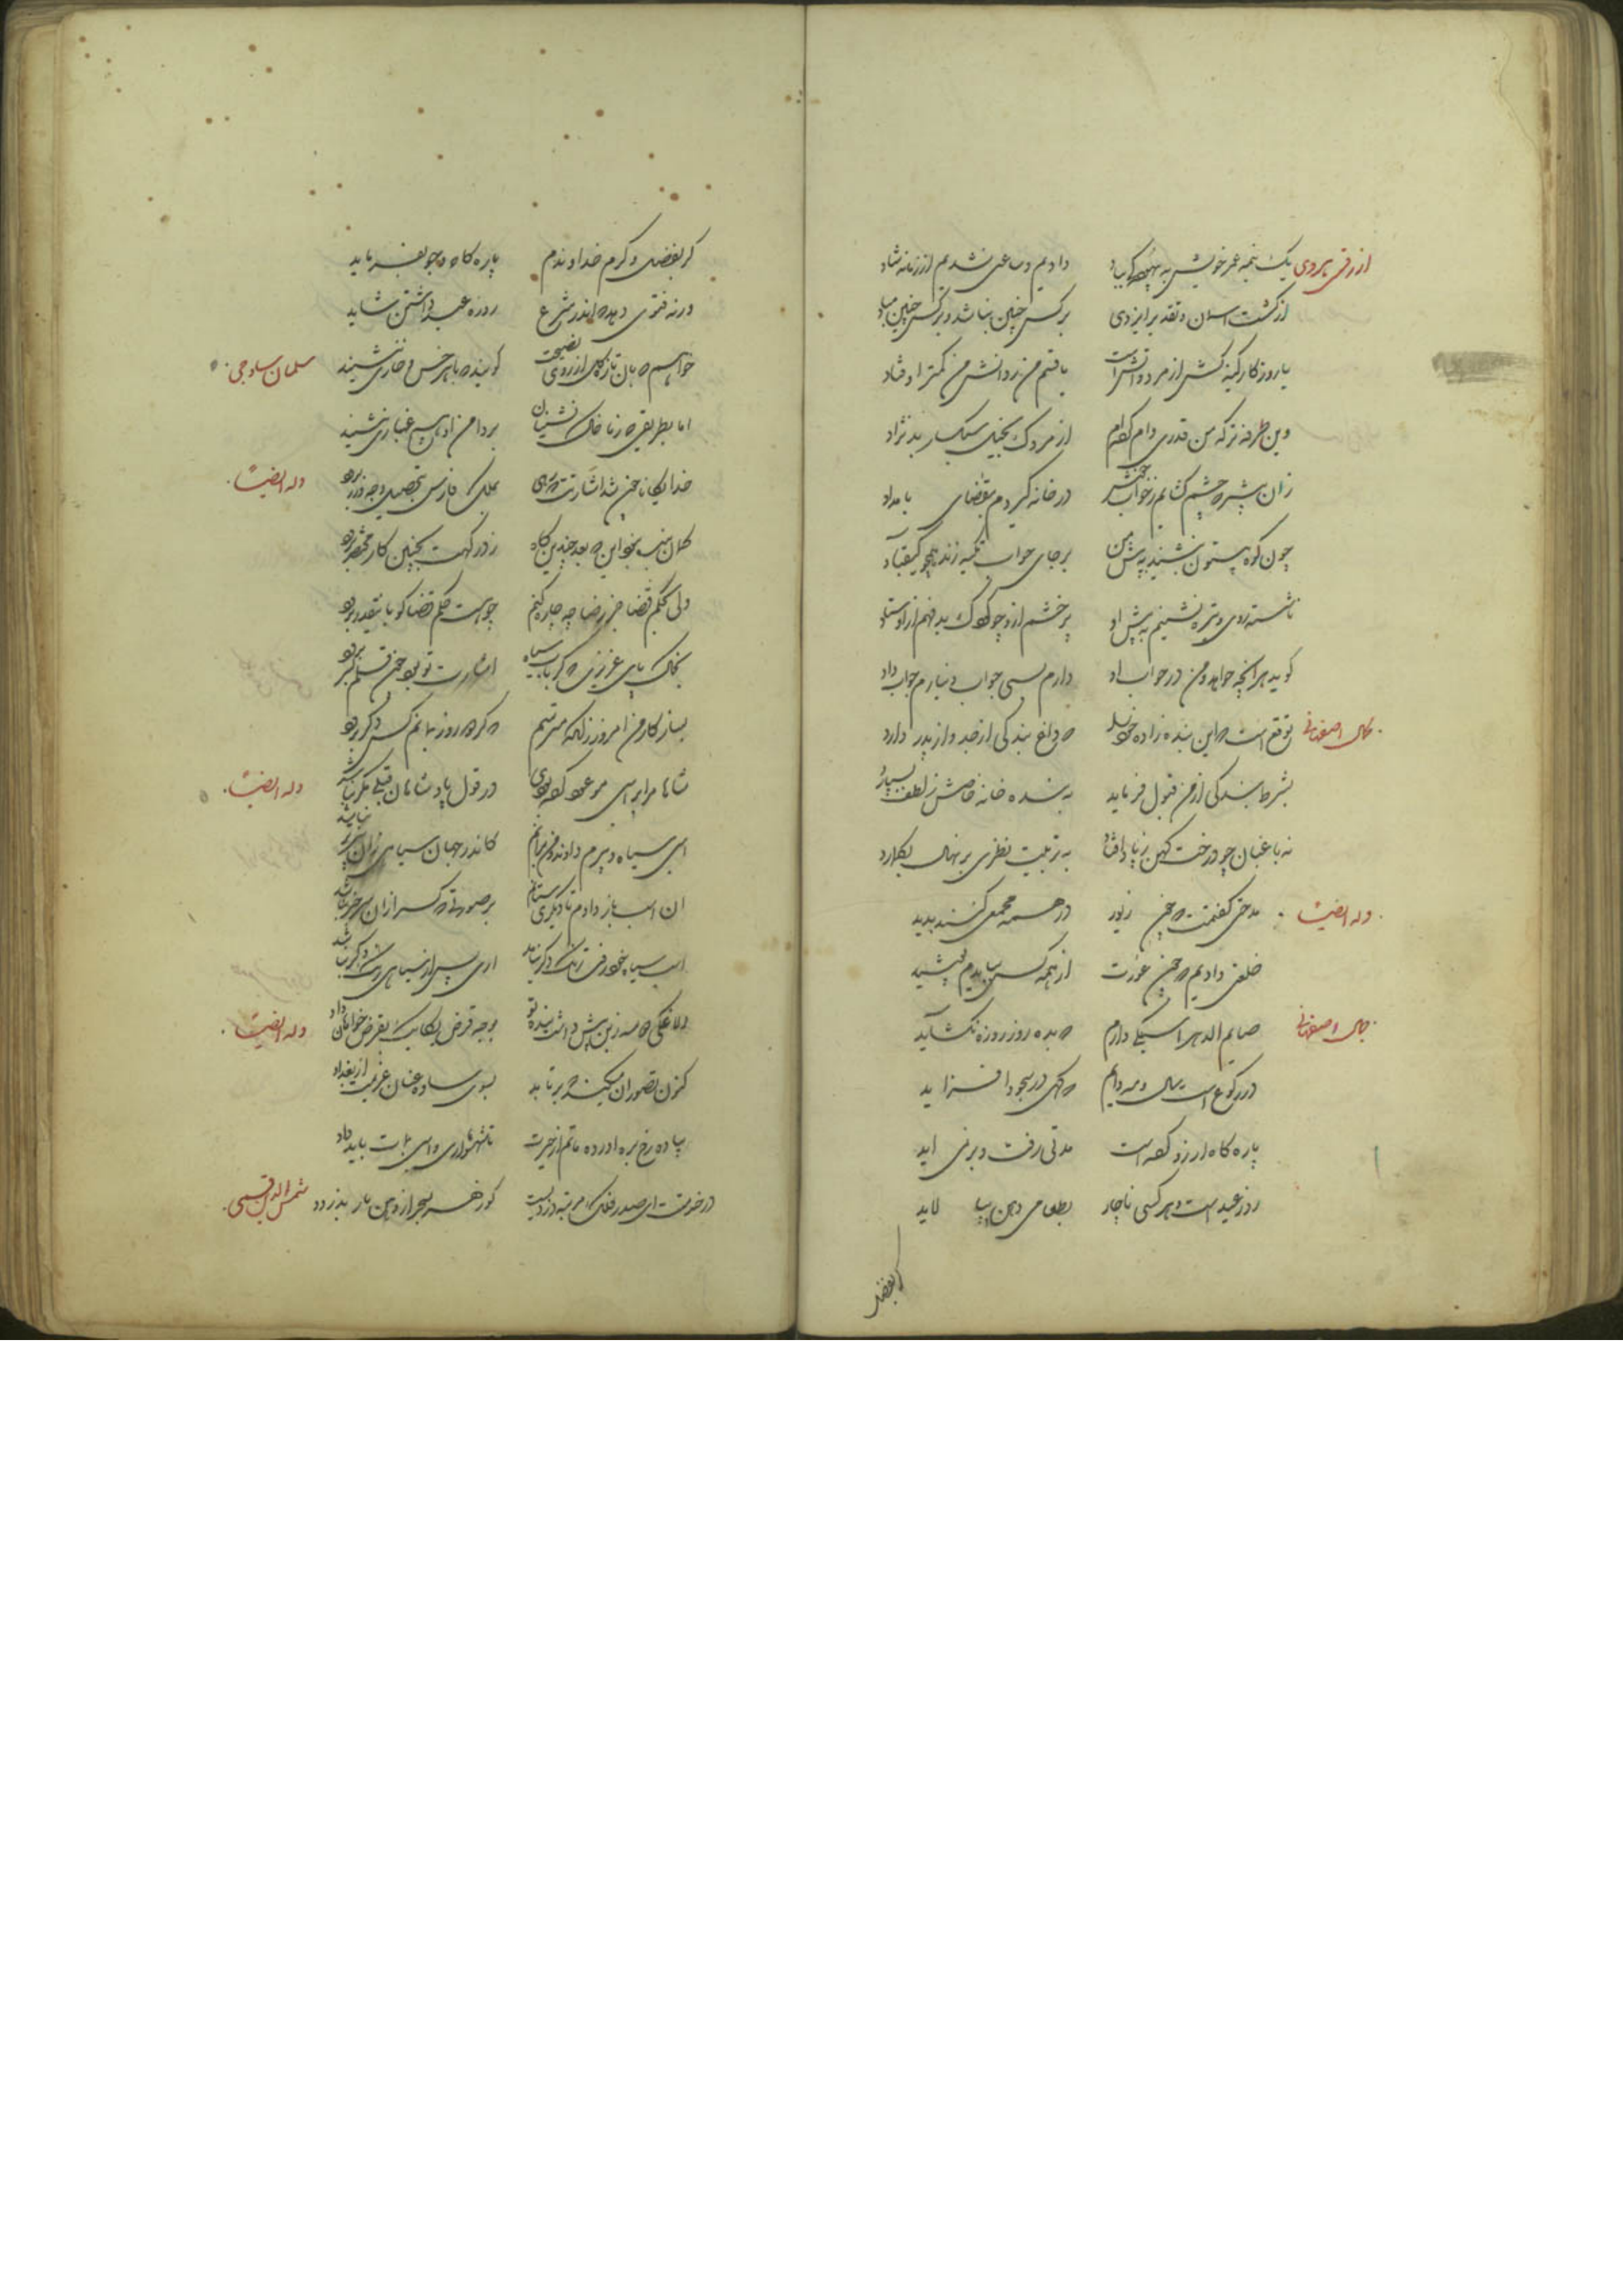 ازرقی هروی یک نیمه عمر خویش به بیهودگی بباد دادیم و ساعتی نشدیم از زمانه شاد
از گشت اسمان و تقدیر ایزدی بر کس چنین نباشد و بر کس چنین مباد
یا روزگار کینه کش از مرد دانش است یا قسم من ز دانش من کمتر اوفتاد
وین طرفه تر که من قدری وام کرده ام از مردک بخیل سبکسار بد نژاد
زان پیشتر که چشم گشایم ز خواب خوش در خانه گیردم بتقاضای بامداد
چون کوه بیستون بنشیند به پیش من بر جای خواب تکیه زند همچو کیقباد
ناشسته روی و تیره نشینم به پیش او پر خشم ازو چو کودک بد فهم از اوستاد
گوید هر انچه خواهد و من در جواب او دارم بسی جواب و نیارم جواب داد
کمال اصفهانی توقع است که این بنده زاده خود را که داغ بندگی از جد و از پدر دارد
بشرط بندگی از من قبول فرماید به بنده خانه خاصش ز لطف بسپارد
نه باغبان چو درخت کهن ز پا افتاد به تربیت نظری بر نهال بگمارد
وله ایضا مدحتی گفتمت که چون زیور در همه مجمعی کنند پدید
خلعتی دادیم که چون عورت از همه کس بایدم پوشید
کمال اصفهانی صایم الدهر اسبکی دارم که بده روز روزه نگشاید
در رکوع است سال و مه دایم که گهی در سجود افزاید
پاره کاه ارزو کرده است مدتی رفت و بر نمی اید
روز عید است و هر کسی ناچار بطعامی دهن بیالاید
گر بفضل
گر بفضل و کرم خداوندم پاره کاه و جو بفرماید
ورنه فتوی دهد که اندر شرع روزه عید داشتن شاید
سلمان ساوجی خواهیم که بان تازه گل از روی نصیحت گویند که با هر خس و خاری ننشیند
اما بطریقی که ز ما خاک نشینان بر دامن او هیچ غباری ننشیند
وله ایضا خدایگانا چون شد اشارتت که رهی بملک فارس بتحصیل وجه زر برود
ولی بحکم قضا جز رضا چه چاره کنم چو هست حکم قضا گو بنقد برود
بخاک پای عزیزی که گر بآب سیاه اشارت تو بود چون قلم بسر برود
بساز کار من امروز زانکه میترسم که گر که روز بمانم کس دگر برود
وله ایضا شاها مرا به اسبی موعود کرده بودی در قول پادشاهان قیلی مگر نباشد
اسبی سیاه و پیرم دادند و من بر انم کاندر جهان سیاهی زان پیرتر نباشد
ان اسب باز دادم تا دیگری ستانم بر صورتی که کس را زان سر خبر نباشد
اسب سیاه خود رفت رنگ دگر نیامد اری پس از سیاهی رنگ دگر نباشد
وله ایضا الاغکی که سه زین پیش داشت بنده تو بوجه قرض یکایک بقرض خواهان داد
کنون تصور ان میکند که برتابد بسوی ساوه عنان عزیمت از بغداد
پیاده رخ بره اورده ماتم از حیرت تا شهسواری و اسبی بمات باید داد
شمس الدین طبسی در خدمتت ای صدر فلک مرتبه